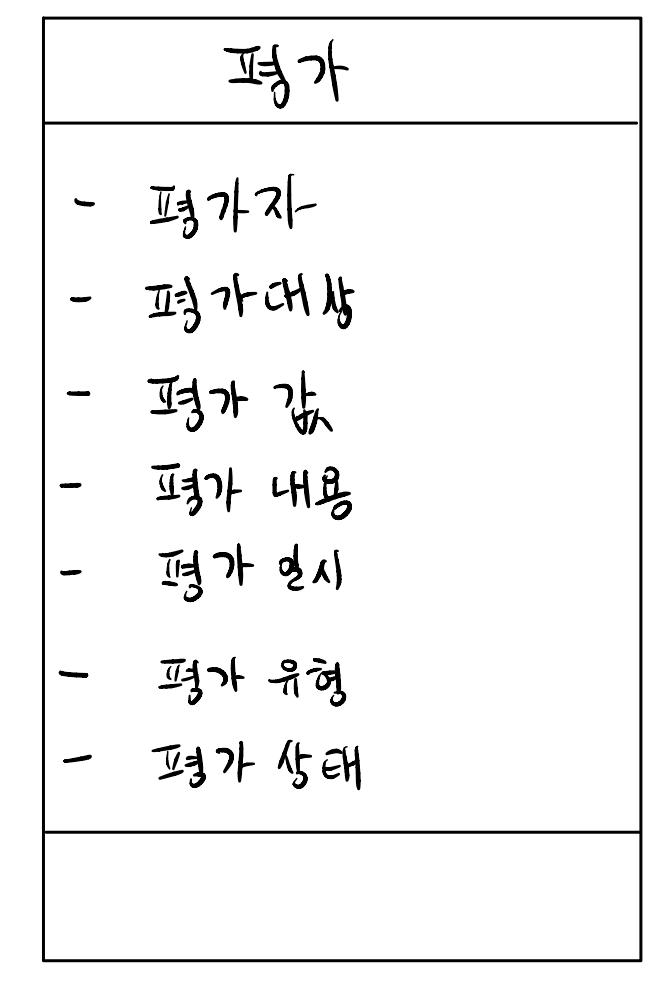 평가
- 평가자
- 평가대상
- 평가 값
- 평가 내용
- 평가 일시
- 평가 유형
- 평가 상태